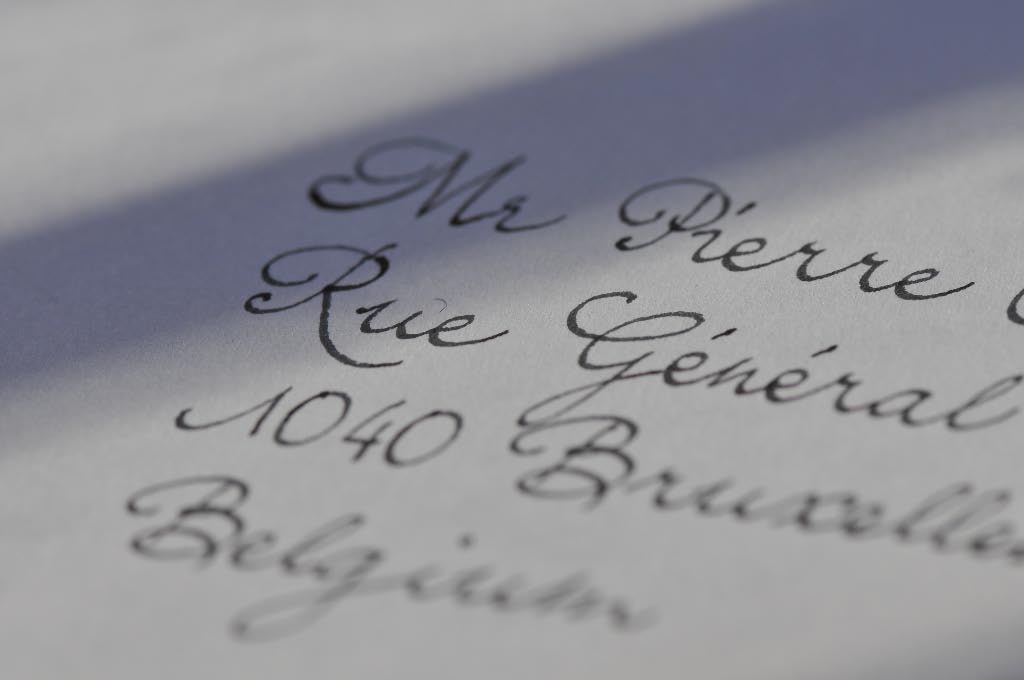 Mr Pierre
Rue Général
1040 Bruxelles
Belgium